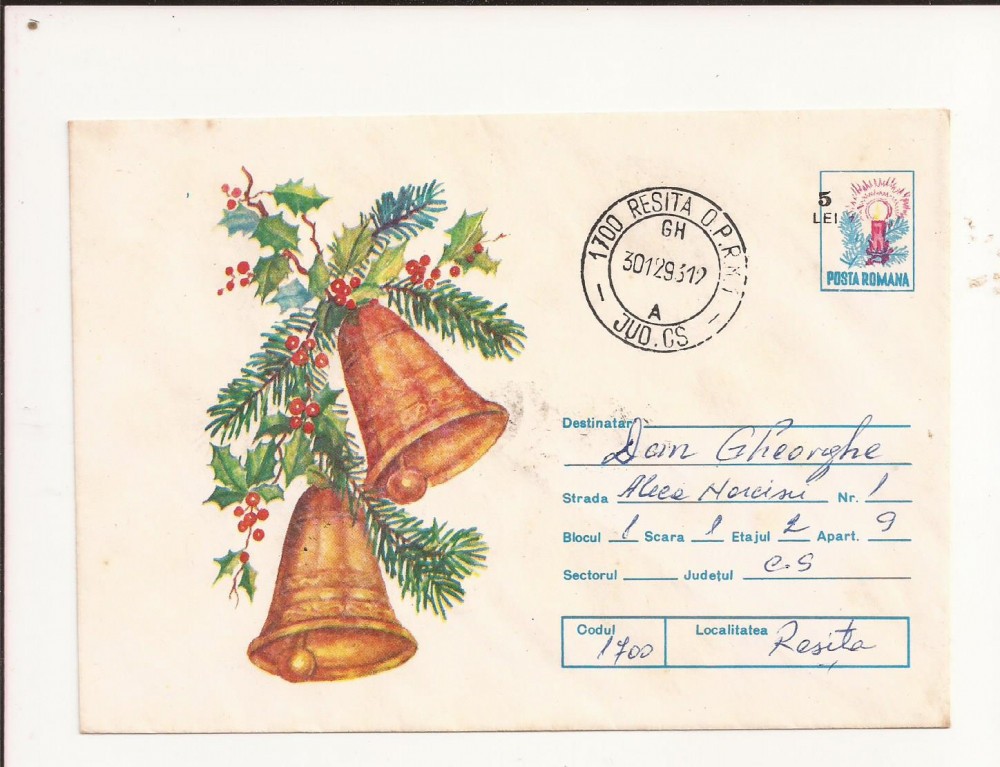 1700 RESITA O.P.R.R.1
GH
3012931
A
JUD. CS
5
LEI
POSTA ROMANA
Destinatar
Dan Gheorghe
Strada Aleea Narcisu Nr. 1
Blocul 1 Scara 1 Etajul 2 Apart. 9
Sectorul Județul C.S
Codul 1700 Localitatea Reșița